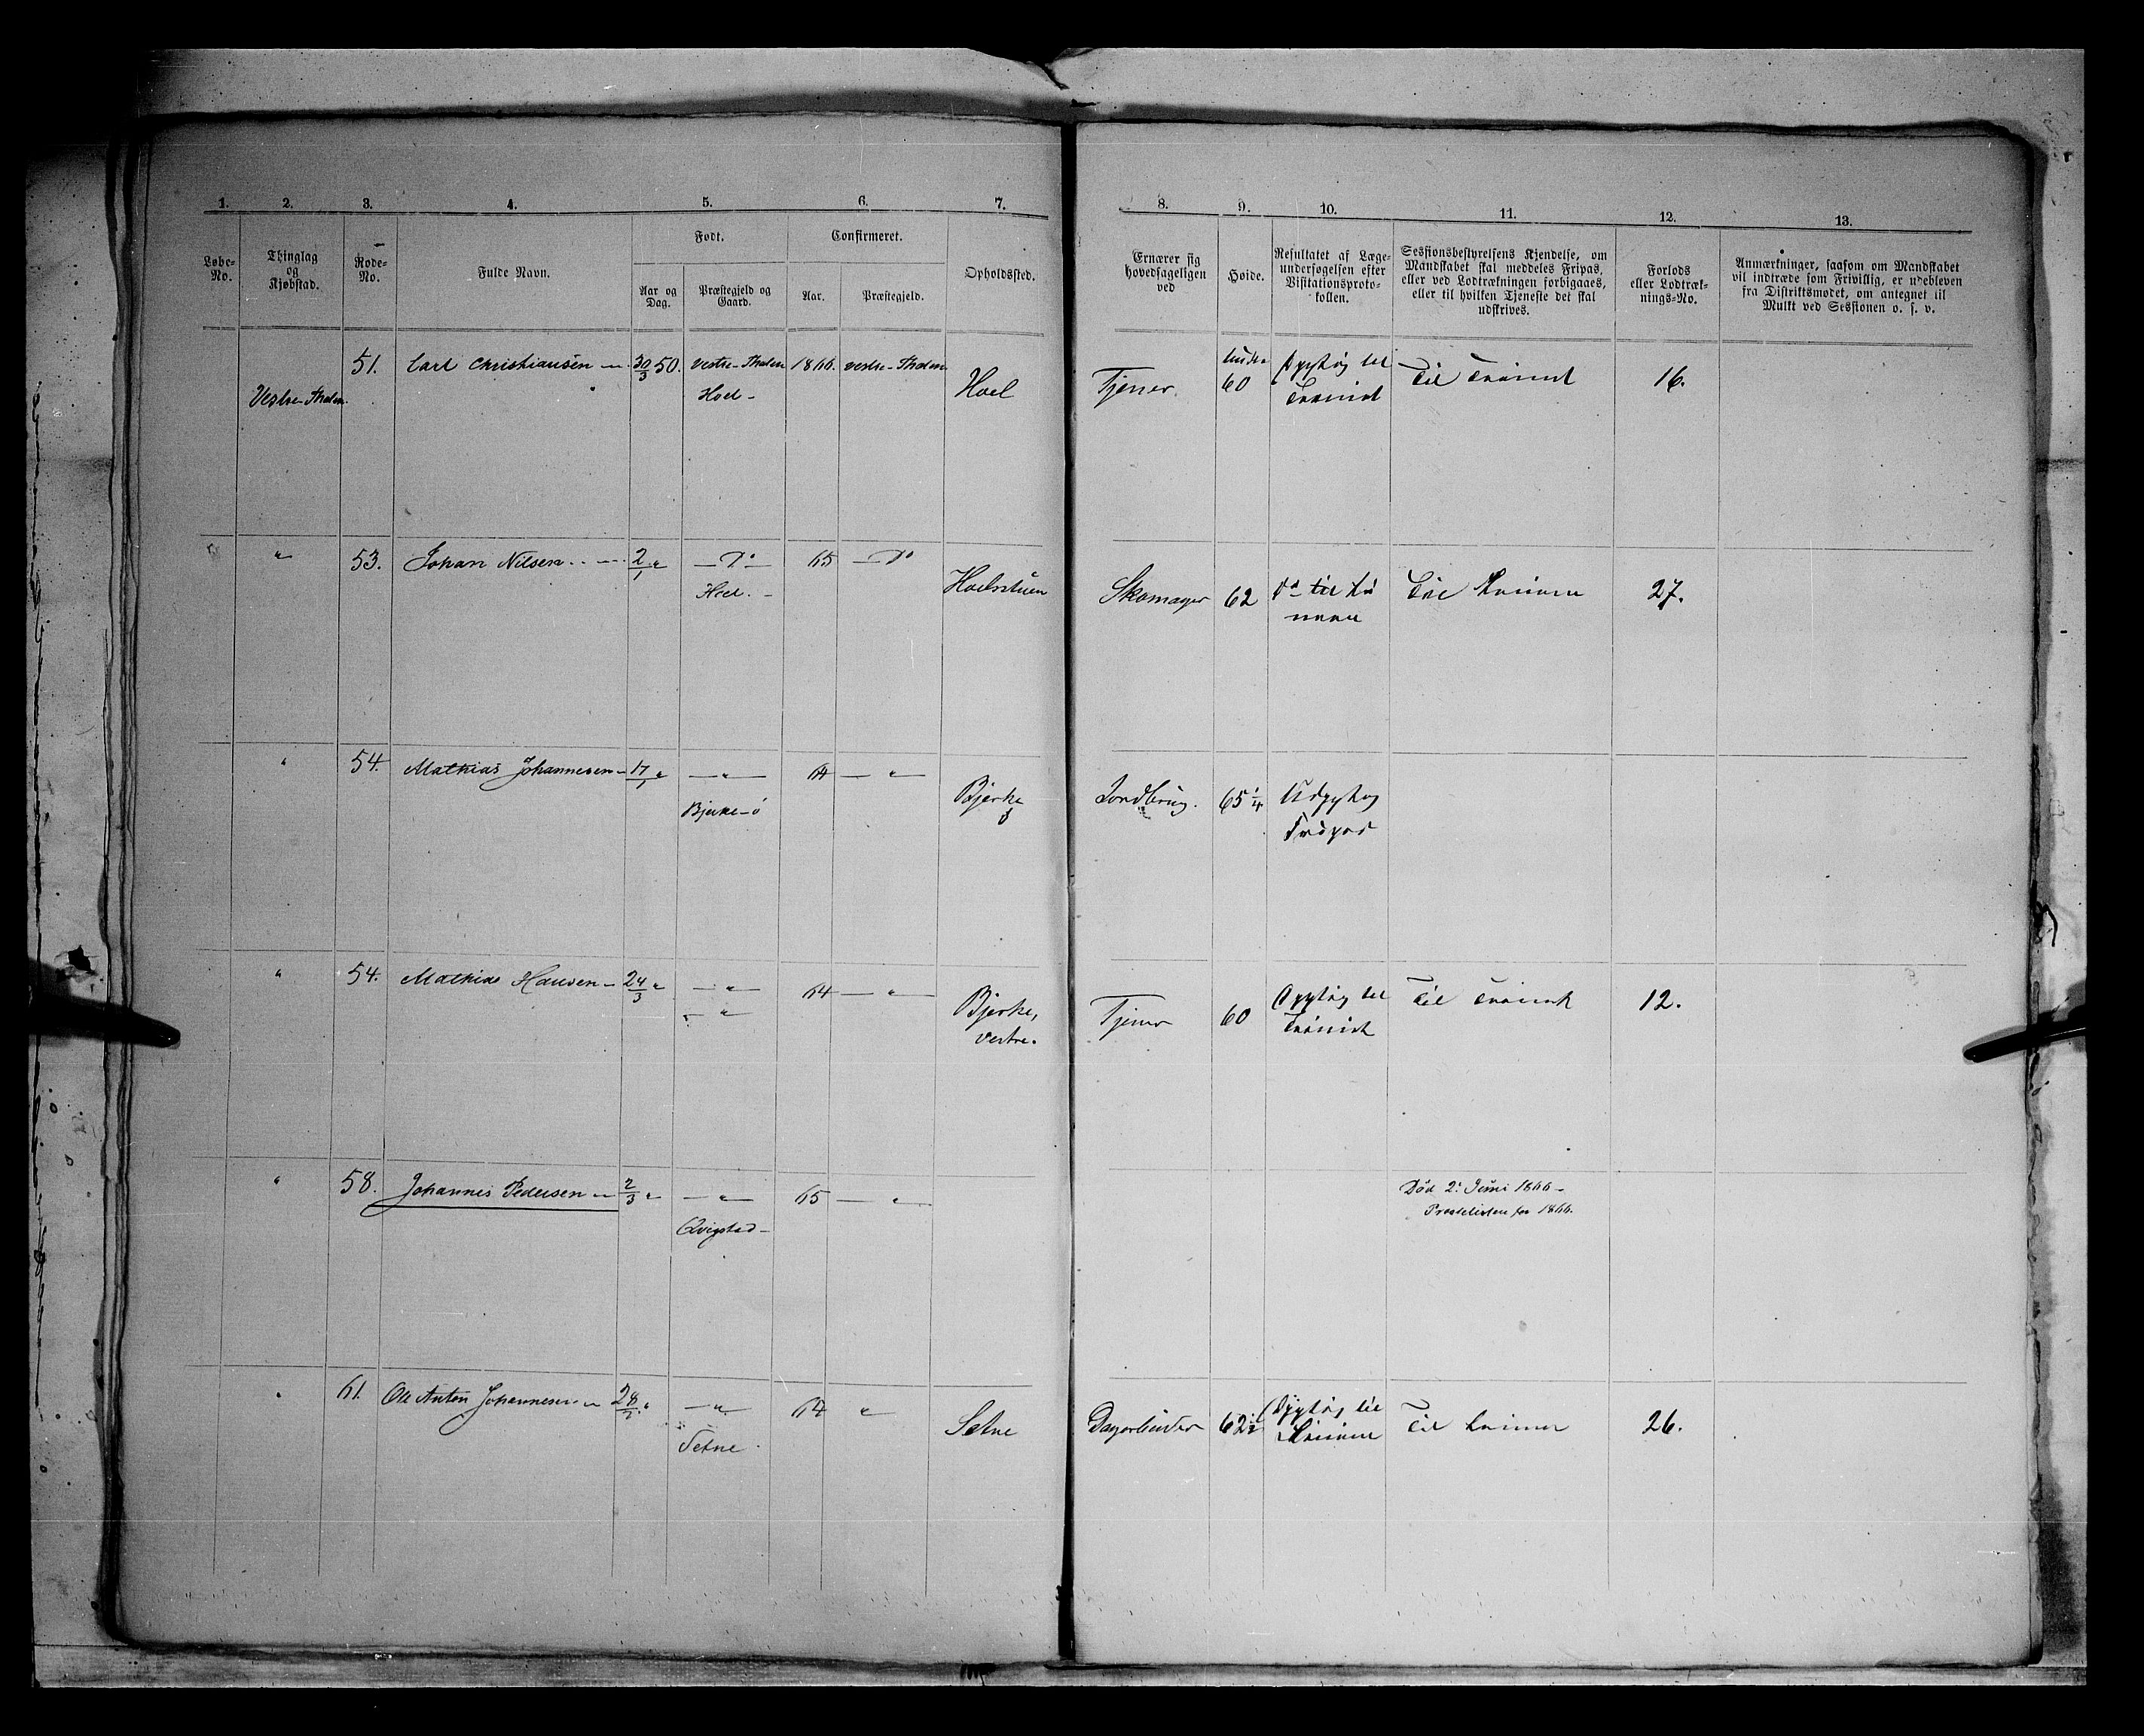 1. 2. 3. 4. 5. 6. 7. 8. 9. 10. 11. 12. 13.
Løbe-No.
Thinglag og Kjøbstad.
Rode-No.
Fulde Navn.
Født.
Aar og Dag.
Præstegjeld og Gaard.
Confirmeret.
Aar.
Præstegjeld.
Opholdssted.
Ernærer sig hovedsageligen ved
Høide.
Resultatet af Læge-undersøgelsen efter Visitationsproto-kollen.
Sessionsbestyrelsens Kjendelse, om Mandskabet skal meddeles Fripas, eller ved Lodtrækningen forbigaaes, eller til hvilken Tjeneste det skal udskrives.
Forlods eller Lodtræk-nings-No.
Anmærkninger, saasom om Mandskabet vil indtræde som Frivillig, er udebleven fra Distriktsmødet, om antegnet til Mulkt ved Sessionen o. s. v.
51. Carl Christiansen 30/3 50. Vestre-Tholen 1866. Vestre-Tholen
Vestre-Tholen Hoel - Hoel Tjener 60 Til 16.
" 53. Johan Nilsen 2/1 " — Do — 65 — Do
Hoel. - Hoelsstuen Skomager 62 Til 27.
" 54. Mathias Johannesen 17/1 " — " — 64 — " —
Bjerke-ø Bjerke ø Jordbrug. 65 1/4 Udygtig
Fripas
" 54. Mathias Hansen 24/3 " — " — 64 — " —
" Bjerke, Tjener 60 Til 12.
Vestre.
" 58. Johannes Pedersen 2/3 " — " — 65 — " Død 2. Juni 1866 -
Qvigstad - Præstelisten for 1866.
" 61. Ole Anton Johannesen 28/2 " — " — 64 "
Setne. Setne 62 1/2 Til 26.